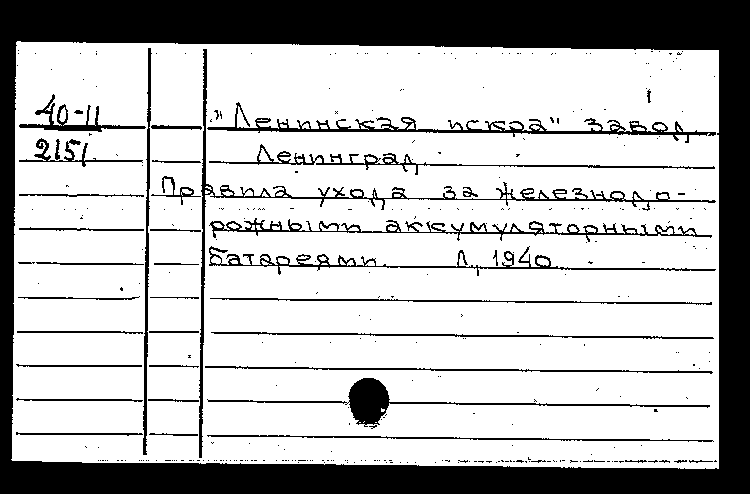 40-11
2151
"Ленинская искра" завод,
Ленинград.
Правила ухода за железнодо-
рожными аккумуляторными
батареями. Л, 1940